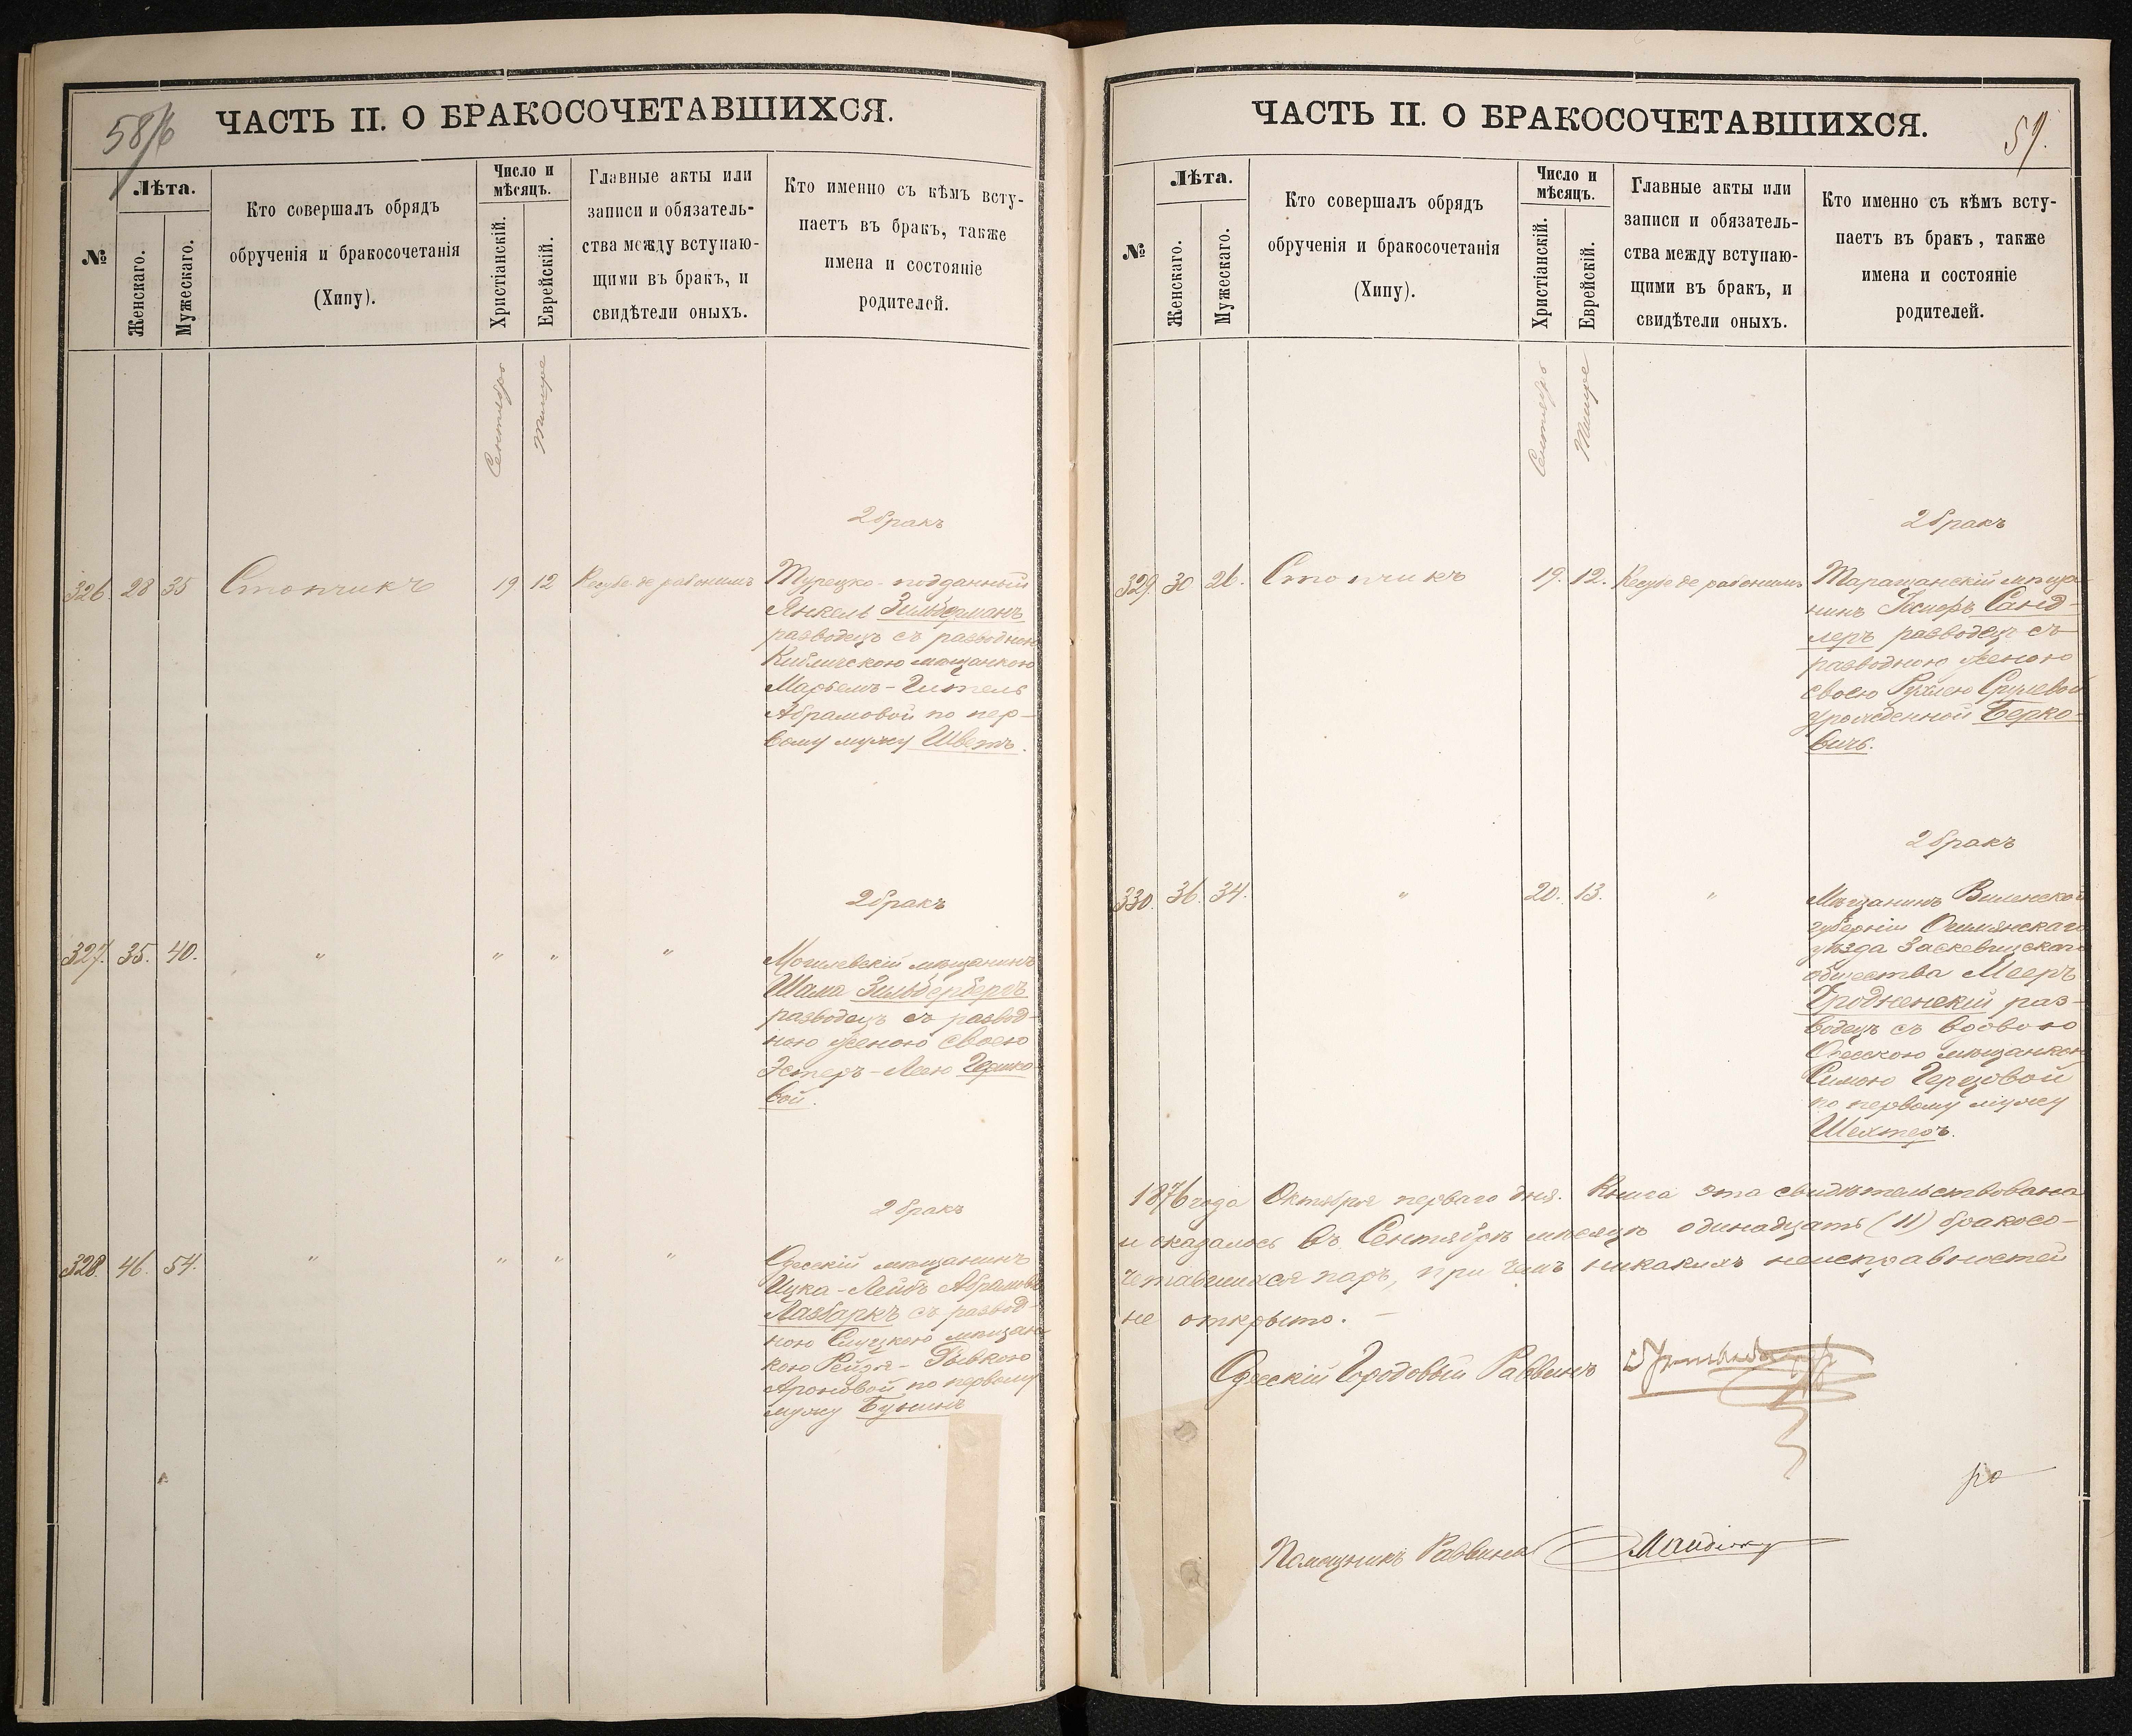 58/б
ЧАСТЬ II. О БРАКОСОЧЕТАВШИХСЯ.
№
Лѣта.
Женскаго.
Мужескаго.
Кто совершалъ обрядъ
обрученія и бракосочетанія
(Хипу).
Число и
мѣсяцъ.
Христіанскій.
Еврейскій.
Главные акты или
записи и обязатель-
ства между вступаю-
щими въ бракъ, и
свидѣтели оныхъ.
Кто именно съ кѣмъ всту-
паетъ въ бракъ, также
имена и состояніе
родителей.
Сентябрь
Тишре
2 бракъ
326. 28 35 Стопчикъ 19 12
Турецко-подданный
Янкель
разводецъ съ разводною
мѣщанкою
Марьемъ-Гитель
Абрамовой по пер-
вому мужу Шветъ.
2 бракъ
327. 35. 40. " " " "
Могилевскій мѣщанинъ
Шама Зильберберг
разводецъ съ развод-
ною женою своею
Эстеръ-Леею Гершко-
вой.
2 бракъ
328. 46. 54. " " " "
Одесскій мѣщанинъ
Ицка-Лейбъ Абрамовъ
съ развод-
ною Слуцкою мѣщан-
кою Рейзя-Рывкою
Ароновой по первому
мужу Бунинъ
ЧАСТЬ II. О БРАКОСОЧЕТАВШИХСЯ.
59.
№
Лѣта.
Женскаго.
Мужескаго.
Кто совершалъ обрядъ
обрученія и бракосочетанія
(Хипу).
Число и
мѣсяцъ.
Христіанскій.
Еврейскій.
Главные акты или
записи и обязатель-
ства между вступаю-
щими въ бракъ, и
свидѣтели оныхъ.
Кто именно съ кѣмъ всту-
паетъ въ бракъ, также
имена и состояніе
родителей.
Сентябрь
Тишре
2 бракъ
329. 30 26. Стопчикъ 19. 12.
Таращанскій мѣща-
нинъ Санд-
леръ разводецъ съ
разводною женою
своею Рухлею Срулевой
урожденной Берко-
вичъ.
2 бракъ
330. 36. 34. " 20. 13. "
Мѣщанинъ Виленской
губерніи Ошмянскаго
уѣзда Заскевицскаго
общества Мееръ
Гродненскій раз-
водецъ съ вдовою
Одесскою мѣщанкою
Симою Герцовой
по первому мужу
Шехтеръ.
1876 года Октября перваго дня. Книга эта свидѣтельствована
и оказалось въ Сентябрѣ мѣсяцѣ одинадцать (11) бракосо-
четавшихся паръ, при чемъ никакихъ неисправностей
не открыто. —
Одесскій Городовый Раввинъ
Помощникъ Раввина